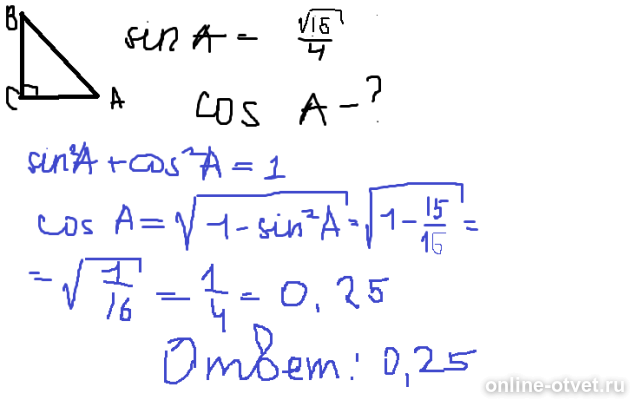 B
sin A = √15/4
C A
cos A - ?
sin²A + cos²A = 1
cos A = √1 - sin²A = √1 - 15/16 =
= √1/16 = 1/4 = 0,25
Ответ: 0,25
online-otvet.ru